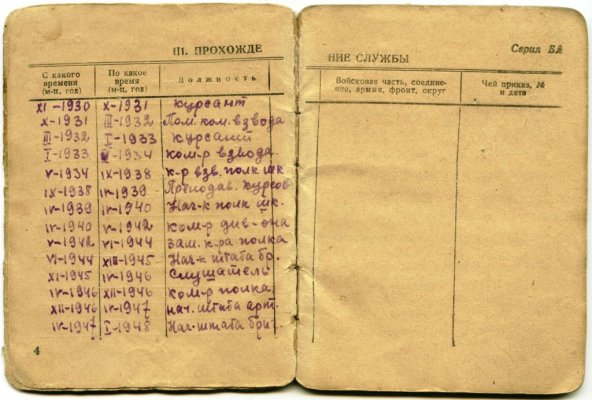 III. ПРОХОЖДЕ
С какого времени (м-ц, год) По какое время (м-ц, год) Должность
XI-1930 X-1931 курсант
X-1931 III-1932 Пом. ком. взвода
III-1932 I-1933 курсант
I-1933 V-1934 ком-р взвода.
V-1934 IX-1938 к-р взв. полк шк.
IX-1938 IV-1939 Преподав. курсов
IV-1939 IV-1940 Нач-к полк шк.
IV-1940 V-1942 ком-р див-она
V-1942 VI-1944 зам. к-ра полка
VI-1944 XII-1945 Нач-к штаба бр.
XI-1945 IV-1946 Слушатель
IV-1946 XII-1946 ком-р полка
XII-1946 IV-1947 нач. штаба арт.
IV-1947 I-1948 Нач. штаба бриг.
4
Серия БА
НИЕ СЛУЖБЫ
Войсковая часть, соединение, армия, фронт, округ Чей приказ, № и дата